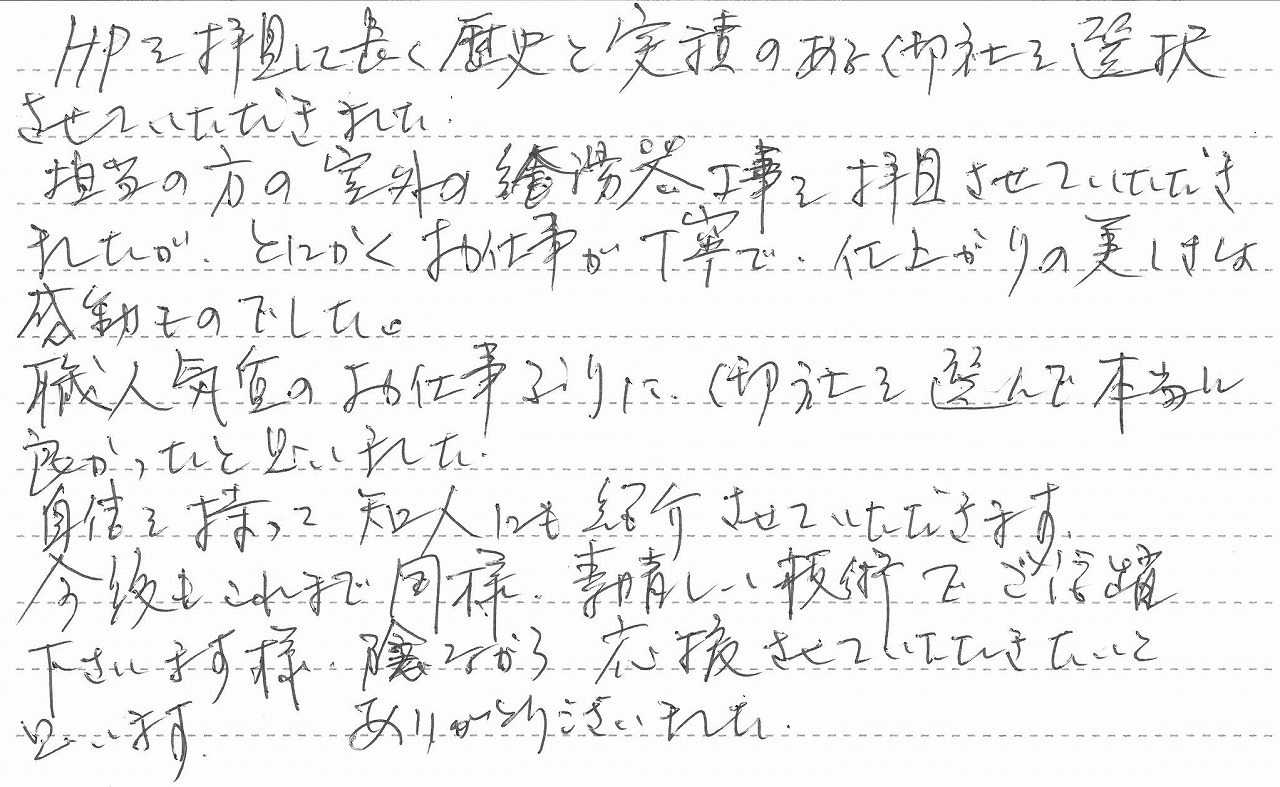 HPを拝見して長く歴史と実績のある御社を選択
させていただきました.
担当の方の室外の給湯器工事を拝見させていただき
ましたが、とにかくお仕事が丁寧で、仕上がりの美しさは
感動ものでした。
職人気質のお仕事ぶりに、御社を選んで本当に
良かったと思いました.
自信を持って知人にも紹介させていただきます.
今後もこれまで同様、素晴しい技術でご活躍
下さいます様、陰ながら応援させていただきたいと
思います. ありがとうございました.